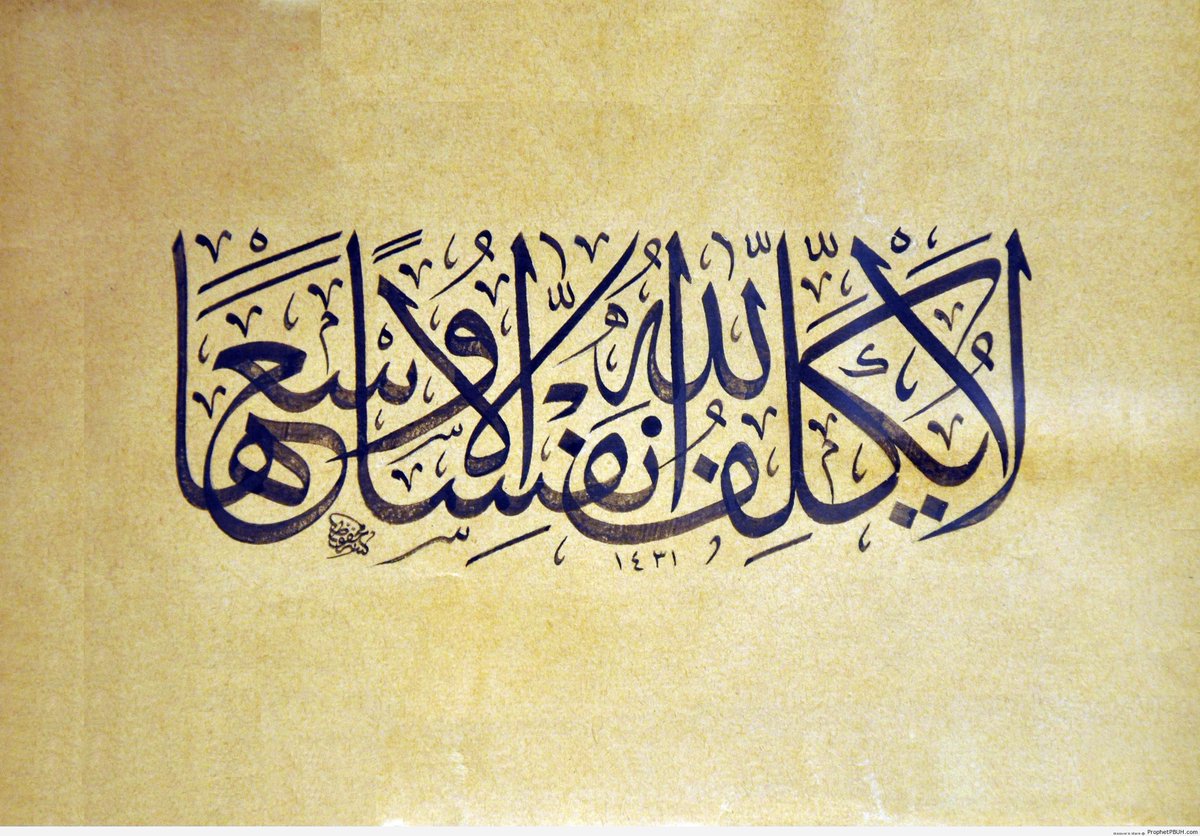 لَا يُكَلِّفُ اللَّهُ نَفْسًا إِلَّا وُسْعَهَا
١٤٣١
ProphetPBUH.com